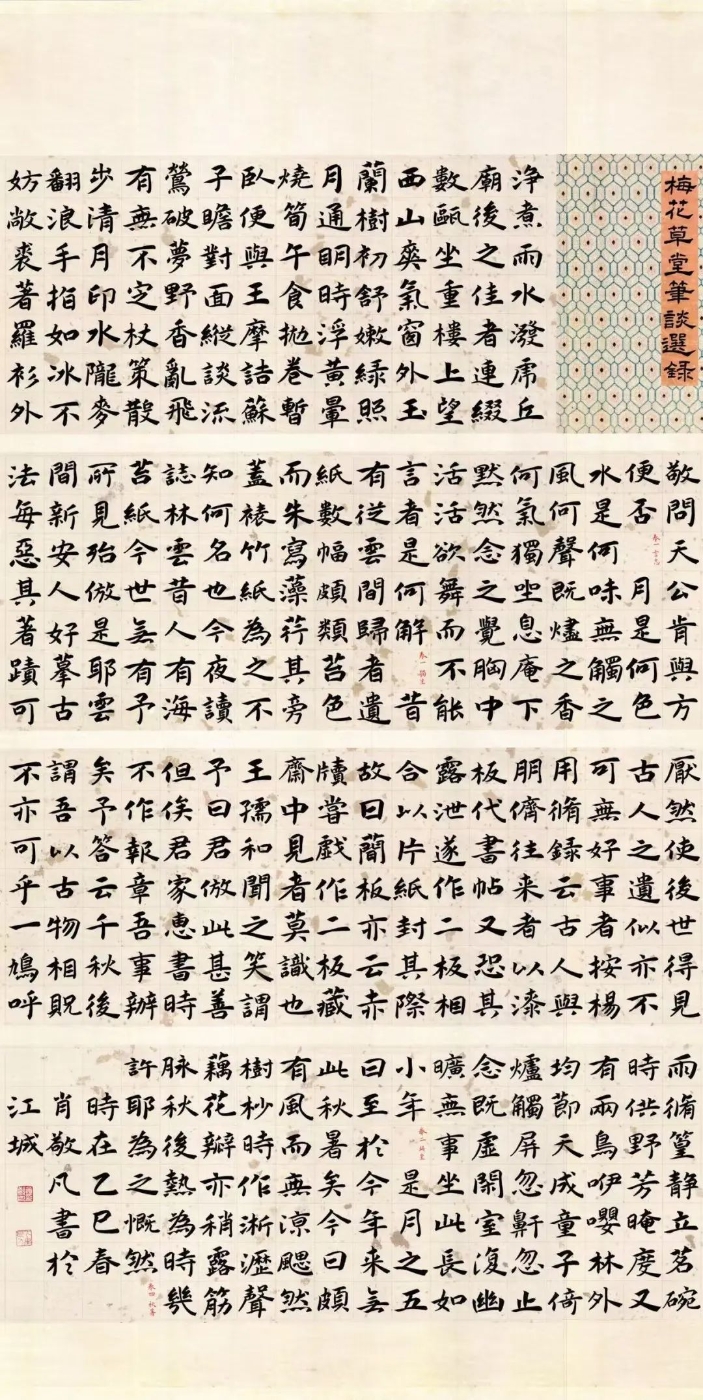 梅花草堂筆談選録
浄煮雨水潑虎丘
廟後之佳者連綴
數甌坐重樓上望
西山爽氣窗外玉
蘭樹初舒嫩綠照
月通明時浮黃暈
燒筍午食拋卷暫
臥便與王摩詰蘇
子瞻對面縱談流
鶯破夢野香亂飛
有無不定杖策散
步清月印水隴麥
翻浪手指如冰不
妨敞裘著羅衫外
敬問天公肯與方
便否 卷一 月是何色
水是何味無觸之
風何聲既燼之香
何氣獨坐息庵下
默然念之覺胸中
活活欲舞而不能
言者是何解 卷一 昔
有從雲間歸者遺
紙數幅頗類苔色
而朱寫藻荇其旁
蓋裱竹紙為之不
知何名也今夜讀
誌林雲昔人有海
苔紙今世無有予
所見殆倣是耶雲
間新安人好摹古
法每惡其著蹟可
厭然使後世得見
古人之遺似亦不
可無好事者按楊
用脩録云古人與
朋儕往来者以漆
板代書帖又恐其
露泄遂作二板相
合以片紙封其際
故曰蕳板亦云赤
牘嘗戲作二板藏
齋中見者莫識也
王孺和聞之笑謂
予曰君倣此甚善
但俟君家惠書時
不作報章吾事辦
矣予答云千秋後
謂吾以古物相貺
不亦可乎一鳩呼
雨脩篁靜立茗碗
時供野芳晻度又
有兩鳥咿嚶林外
均節天成童子倚
爐觸屏忽鼾忽止
念既虛閑室復幽
曠無事坐此長如
小年 卷二 是月之五
曰至於今年来無
此秋暑矣今日頗
有風而無涼颸然
樹杪時作淅瀝聲
藕花瓣亦稍露筋
脉秋後熱為時幾
許耶為之慨然 卷四
時在乙巳春
肖敬凡書於
江城